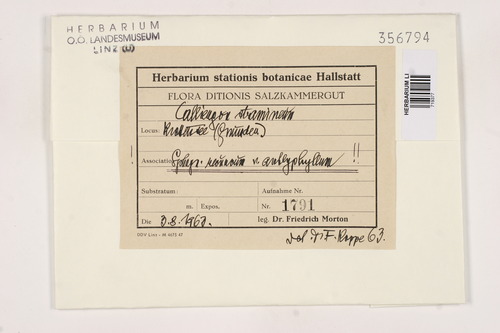 HERBARIUM
O.Ö. LANDESMUSEUM
LINZ (LI)
356794
HERBARIUM LI
Herbarium stationis botanicae Hallstatt
FLORA DITIONIS SALZKAMMERGUT
Calliergon stramineum
Locus: (Gmunden)
Associatio: Sphagn. recurvum v. amblyphyllum !!
Substratum: Aufnahme Nr.
m. Expos. Nr. 1791
Die 3.8.1963. leg. Dr. Friedrich Morton
Det. Dr. F. Koppe 63.